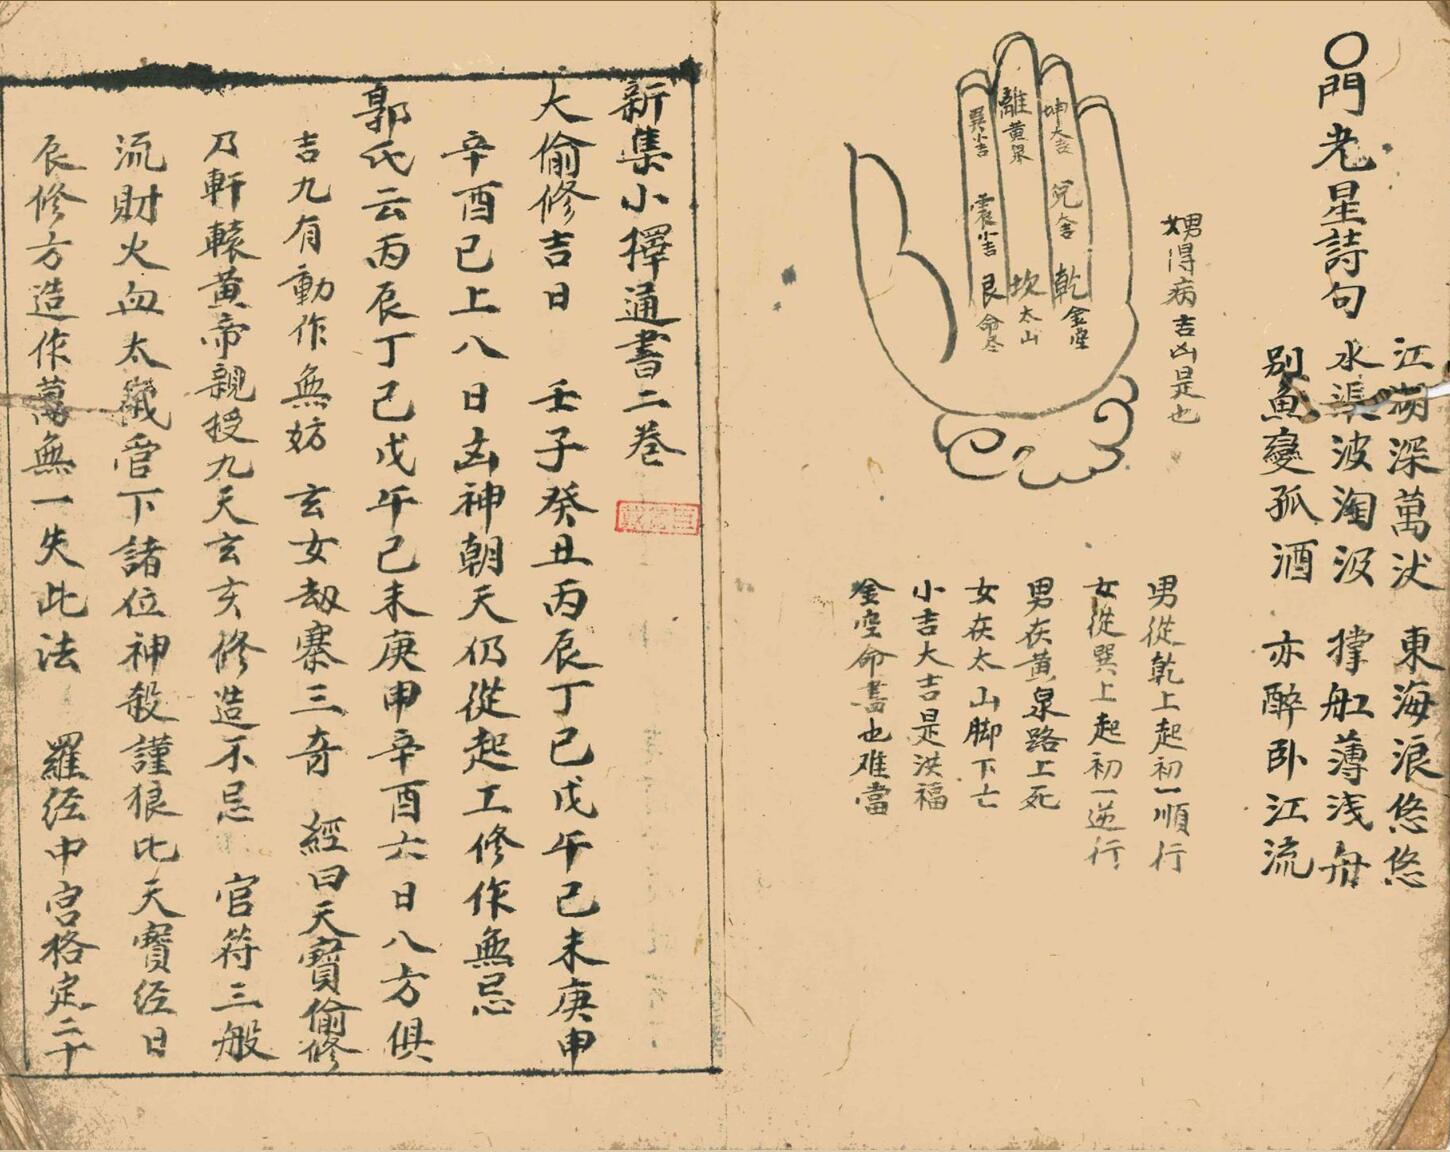 〇門光星詩句
江湖深萬㳇　東海浪悠悠
水渠波淘汲　撐舡薄浅舟
别魚變孤酒　亦醉卧江流
甥得病吉凶是也
坤大吉
兌金
乾金空
離黄泉
坎太山
巽小吉
震小吉
艮命尽
男從乾上起初一順行
女從巽上起初一逆行
男在黄泉路上死
女在太山脚下亡
小吉大吉是洪福
金空命書也难當
新集小擇通書二卷
大偷修吉日　壬子癸丑丙辰丁巳戊午己未庚申
辛酉已上八日凶神朝天仍從起工修作無忌
郭氏云丙辰丁己戊午己未庚申辛酉六日八方俱
吉九有動作無妨　玄女劫寨三奇　經曰天寶偷修
乃軒轅黄帝親授九天玄女修造不忌　官符三般
流財火血太歲官下諸位神殺謹狼比天寶经日
辰修方造作萬無一失此法　羅经中宫格定二十